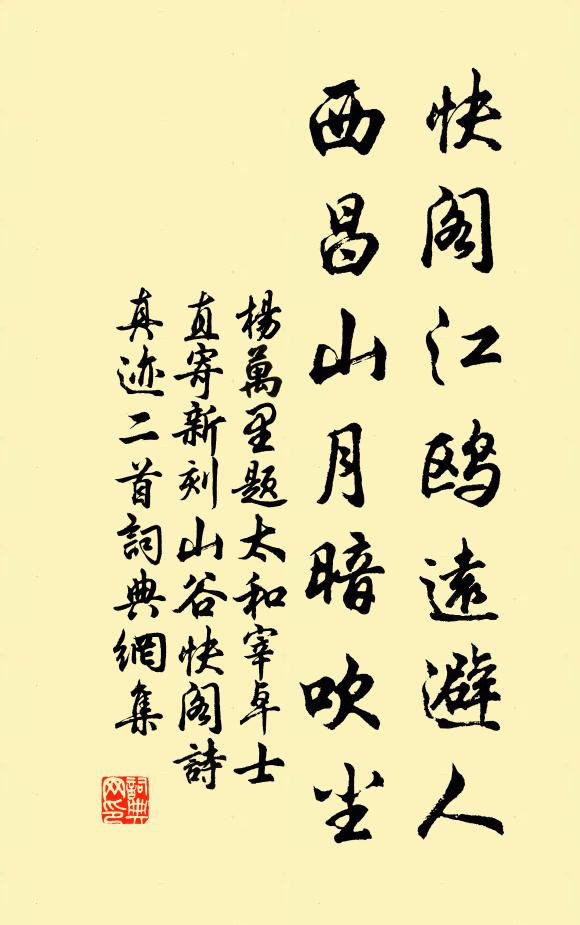 快阁江鸥遠避人
西昌山月暗吹尘
楊萬里题太和宰卓士
直寄新刻山谷快阁詩
真迹二首詞典網集
詞典
网印